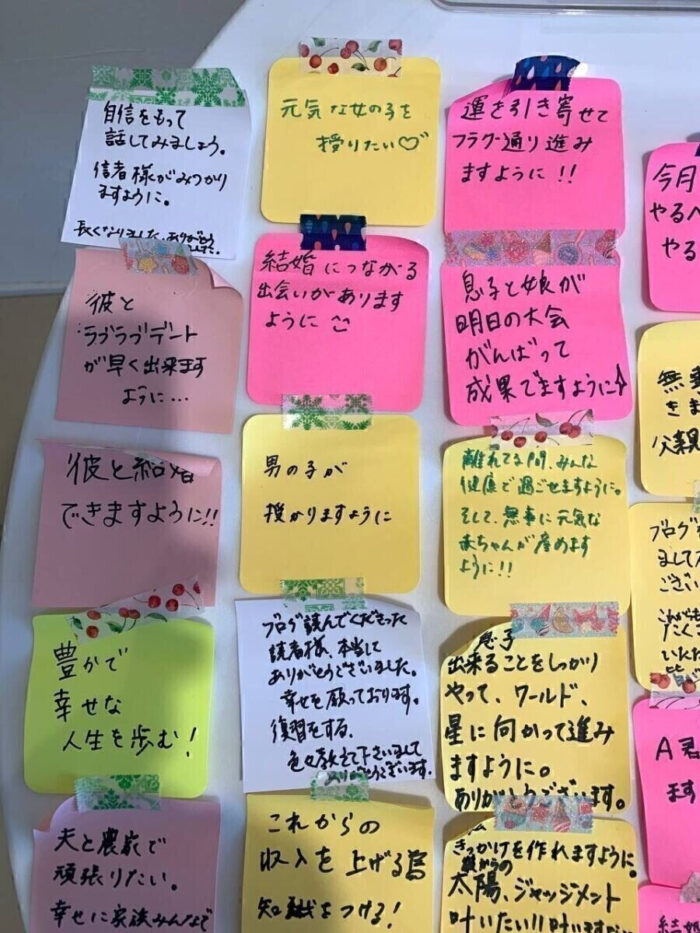 自信をもって
話してみましょう。
信者様がみつかり
ますように。
長くなりました。ありがとう
元気な女の子を
授りたい♡
運を引き寄せて
フラグー通り進み
ますように!!
今月
やるべ
やる
彼と
ラブラブデート
が早く出来ます
ように…
結婚につながる
出会いがあります
ように
息子と娘が
明日の大会
がんばって
成果でますように♪
無事
きま
父親
彼と結婚
できますように!!
男の子が
授かりますように
離れてる間、みんな
健康で過ごせますように。
そして、無事に元気な
赤ちゃんが産めます
ように!!
ブログ
まして
ござい
豊かで
幸せな
人生を歩む!
ブログ読んでくださった
読者様、本当に
ありがとうございました。
幸せを願っております。
復習をする、
色々教えて下さいまして
ありがとうございます。
息子
出来ることをしっかり
やって、ワールド、
星に向かって進み
ますように。
ありがとうございます。
A君
ます
夫と農家で
頑張りたい。
幸せに家族みんなで
これからの
収入を上げる為
知識をつける!
きっかけを作れますように。
太陽、ジャッジメント
叶いたい!!
結婚